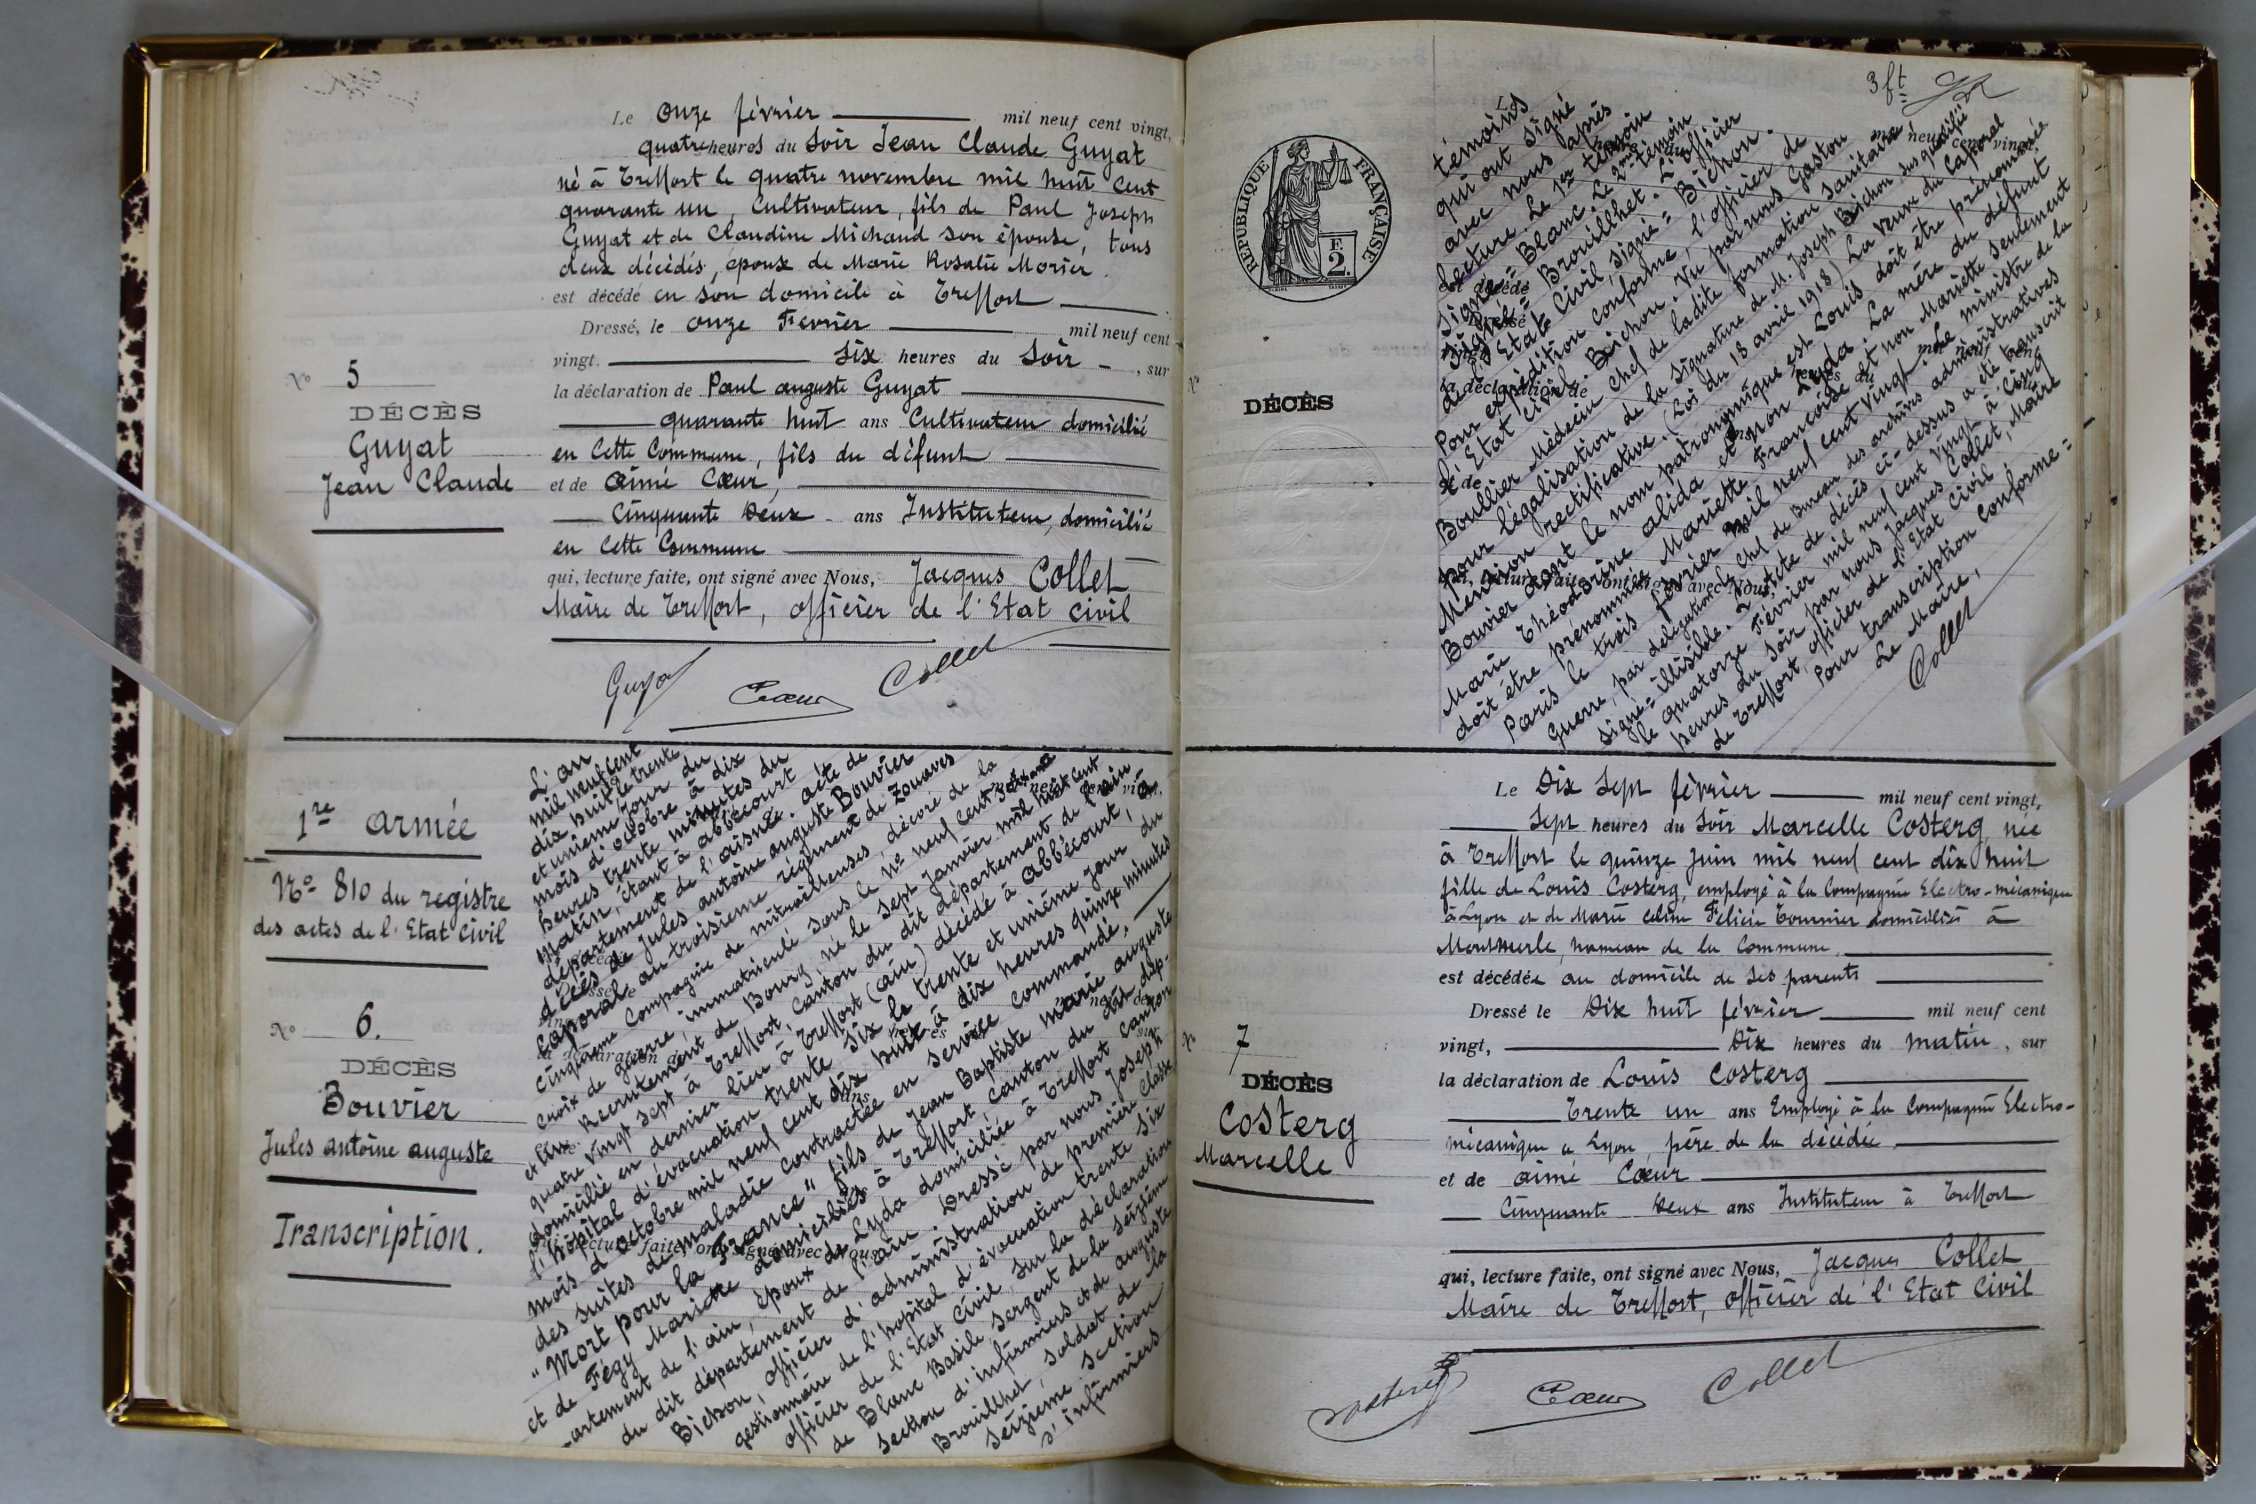 Le onze février mil neuf cent vingt,
quatre heures du soir Jean Claude Guyat
né à Treffort le quatre novembre mil huit cent
quarante un, Cultivateur, fils de Paul Joseph
Guyat et de Claudine Michaud son épouse, tous
deux décédés, époux de Marie Rosalie Morier
est décédé en son domicile à Treffort
Dressé, le onze Février mil neuf cent
vingt. Six heures du Soir, sur
la déclaration de Paul auguste Guyat
quarante huit ans Cultivateur domicilié
en cette Commune, fils du défunt
et de Aimé Cœur,
Cinquante Deux ans Instituteur, domicilié
en cette Commune
qui, lecture faite, ont signé avec Nous, Jacques Collet
Maire de Treffort, officier de l'Etat civil
Guyat Cœur Collet
No 5
DÉCÈS
Guyat
Jean Claude
1re armée
No 810 du registre
des actes de l'Etat civil
No 6.
DÉCÈS
Bouvier
Jules antoine auguste
Transcription.
L'an
mil neuf cent
dix huit le trente
et unième jour du
mois d'octobre à dix
heures trente minutes du
matin, étant à abbécourt
département de l'aisne. acte de
décès de Jules antoine auguste Bouvier
Caporal au troisième régiment de Zouaves
Cinquième Compagnie de mitrailleuses décoré de la
Croix de guerre immatriculé sous le No neuf cent soixante
et un. Recrutement de Bourg, né le sept janvier mil huit cent
quatre vingt sept à Treffort, Canton du dit département de l'ain
domicilié en dernier lieu à Treffort (ain) décédé à abbécourt, à
l'hôpital d'évacuation trente six le trente et unième jour du
mois d'octobre mil neuf cent dix huit à dix heures quinze minutes
des suites de maladie contractée en service commandé,
"Mort pour la France" fils de Jean Baptiste Marie auguste
et de Fégy Mariette domiciliés à Treffort Canton du dit dép-
artement de l'ain, époux de Lyda domiciliée à Treffort canton
du dit département de l'ain. Dressé par nous Joseph
Bichon, officier d'administration de première classe,
gestionnaire de l'hôpital d'évacuation trente six
officier de l'Etat Civil, sur la déclaration
de Blanc Basile, sergent de la seizième
section d'infirmiers et de auguste
Brouillhet, soldat de la
seizième section
d'infirmiers
3 ft
RÉPUBLIQUE FRANÇAISE
F.
2.
No
DÉCÈS
témoins
qui ont signé
avec nous après
lecture. Le 1er témoin
signé = Blanc. Le 2me témoin
signé = Brouillhet. L'officier
de l'Etat Civil signé = Bichon.
Pour expédition conforme, l'officier de
l'Etat civil. Bichon. Vu par nous Gaston
Boullier Médecin Chef de ladite formation sanitaire
pour légalisation de la signature de M. Joseph Bichon sus qualifié
Mention rectificative. (Loi du 18 avril 1918) La veuve du Caporal
Bouvier dont le nom patronymique est Louis doit être prénommée
Marie Théodorine alida et non Lyda. La mère du défunt
doit être prénommée Mariette Françoise et non Mariette seulement
Paris le trois février mil neuf cent vingt. Le ministre de la
Guerre, par délégation le chef de Bureau des archives administratives
signé = illisible. L'acte de décès ci-dessus a été transcrit
le quatorze Février mil neuf cent vingt à Cinq
heures du Soir par nous Jacques Collet, Maire
de Treffort, officier de l'Etat civil.
Pour transcription conforme =
Le Maire,
Collet
Le Dix Sept février mil neuf cent vingt,
Sept heures du Soir Marcelle Costerg née
à Treffort le quinze Juin mil neuf cent dix huit
fille de Louis Costerg, employé à la Compagnie Electro-mécanique
à Lyon et de Marie celine Félicie Tournier domiciliés à
Montmerle, hameau de la Commune
est décédée au domicile de ses parents
Dressé le Dix huit février mil neuf cent
vingt, Dix heures du matin, sur
la déclaration de Louis Costerg
Trente un ans Employé à la Compagnie Electro-
mécanique à Lyon, père de la décédée
et de Aimé Cœur
Cinquante Deux ans Instituteur à Treffort
qui, lecture faite, ont signé avec Nous, Jacques Collet
Maire de Treffort, officier de l'Etat Civil
Costerg Cœur Collet
No 7
DÉCÈS
Costerg
Marcelle